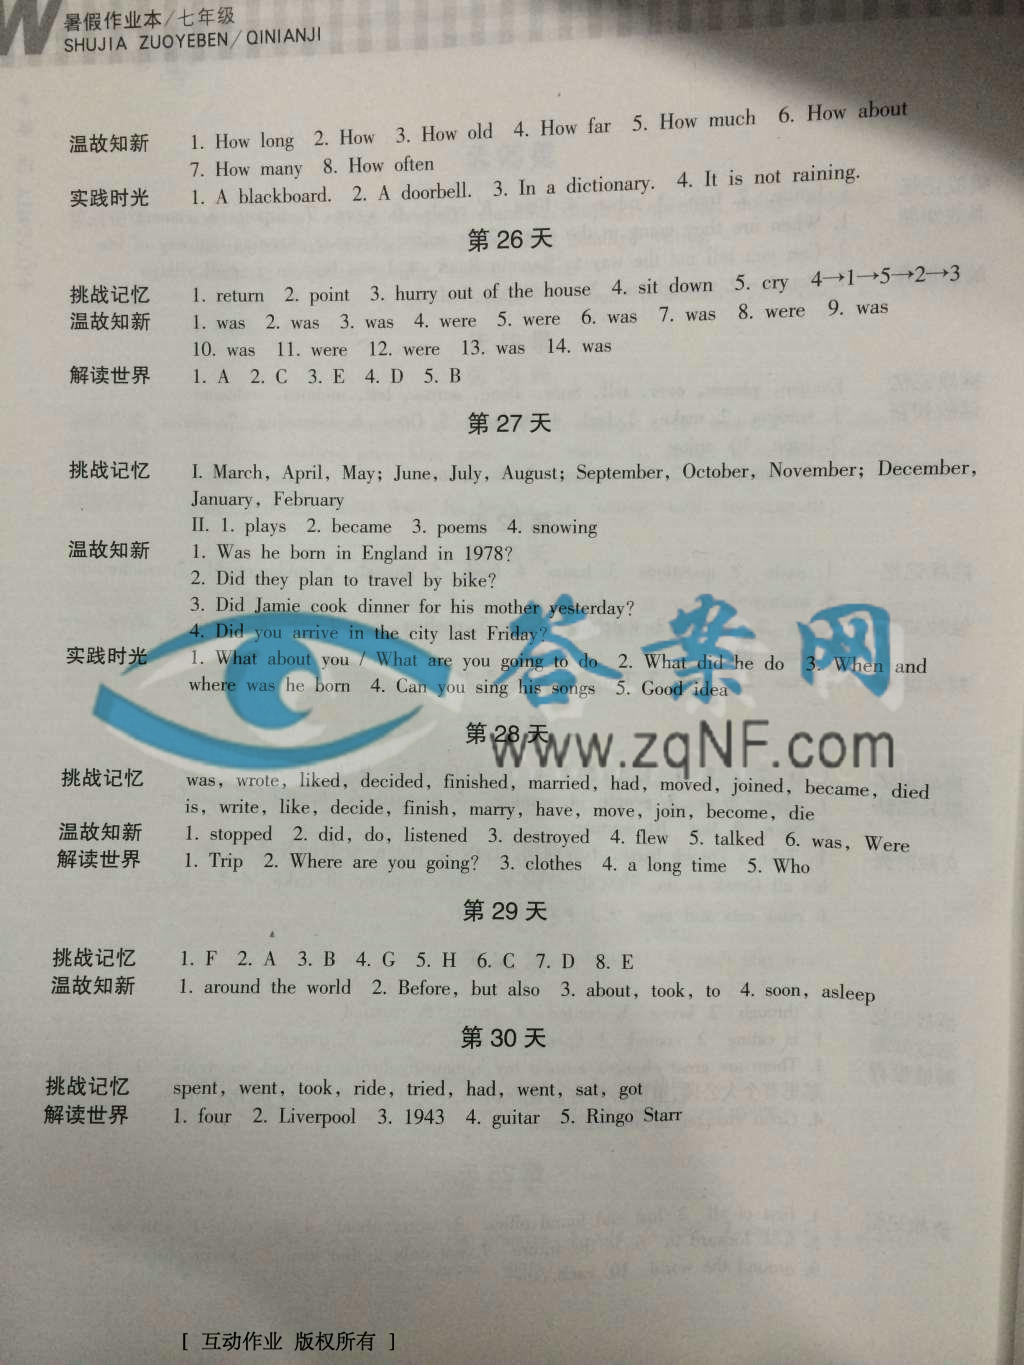 暑假作业本/七年级
SHUJIA ZUOYEBEN/QINIANJI
温故知新 1. How long 2. How 3. How old 4. How far 5. How much 6. How about
7. How many 8. How often
实践时光 1. A blackboard. 2. A doorbell. 3. In a dictionary. 4. It is not raining.
第 26 天
挑战记忆 1. return 2. point 3. hurry out of the house 4. sit down 5. cry 4→1→5→2→3
温故知新 1. was 2. was 3. was 4. were 5. were 6. was 7. was 8. were 9. was
10. was 11. were 12. were 13. was 14. was
解读世界 1. A 2. C 3. E 4. D 5. B
第 27 天
挑战记忆 I. March, April, May; June, July, August; September, October, November; December,
January, February
II. 1. plays 2. became 3. poems 4. snowing
温故知新 1. Was he born in England in 1978?
2. Did they plan to travel by bike?
3. Did Jamie cook dinner for his mother yesterday?
4. Did you arrive in the city last Friday?
实践时光 1. What about you / What are you going to do 2. What did he do 3. When and
where was he born 4. Can you sing his songs 5. Good idea
答案网
第 28 天
www.zqNF.com
挑战记忆 was, wrote, liked, decided, finished, married, had, moved, joined, became, died
is, write, like, decide, finish, marry, have, move, join, become, die
温故知新 1. stopped 2. did, do, listened 3. destroyed 4. flew 5. talked 6. was, Were
解读世界 1. Trip 2. Where are you going? 3. clothes 4. a long time 5. Who
第 29 天
挑战记忆 1. F 2. A 3. B 4. G 5. H 6. C 7. D 8. E
温故知新 1. around the world 2. Before, but also 3. about, took, to 4. soon, asleep
第 30 天
挑战记忆 spent, went, took, ride, tried, had, went, sat, got
解读世界 1. four 2. Liverpool 3. 1943 4. guitar 5. Ringo Starr
[ 互动作业 版权所有 ]